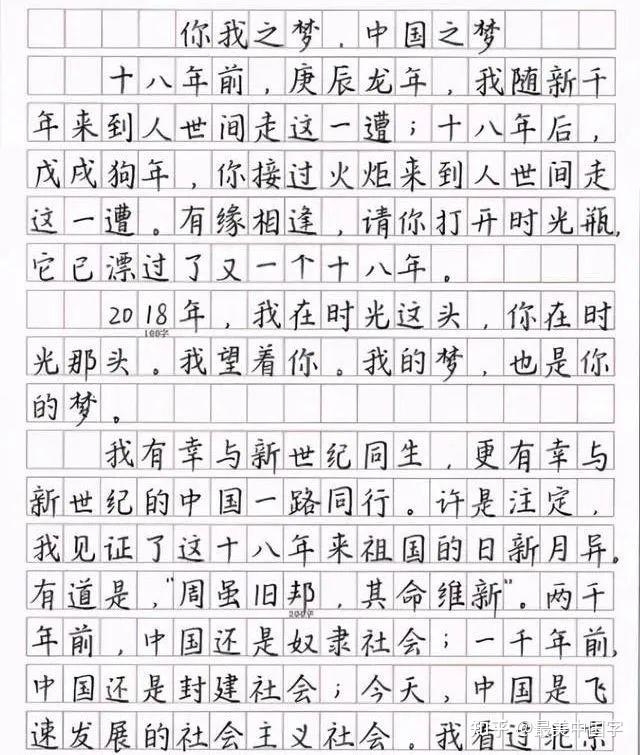 你我之梦，中国之梦
十八年前，庚辰龙年，我随新千
年来到人世间走这一遭；十八年后，
戊戌狗年，你接过火炬来到人世间走
这一遭。有缘相逢，请你打开时光瓶，
它已漂过了又一个十八年。
2018年，我在时光这头，你在时
100字
光那头。我望着你。我的梦，也是你
的梦。
我有幸与新世纪同生，更有幸与
新世纪的中国一路同行。许是注定，
我见证了这十八年来祖国的日新月异。
有道是，“周虽旧邦，其命维新”。两千
200字
年前，中国还是奴隶社会；一千年前，
中国还是封建社会；今天，中国是飞
速发展的社会主义社会。我有过
知乎 @最美中国字